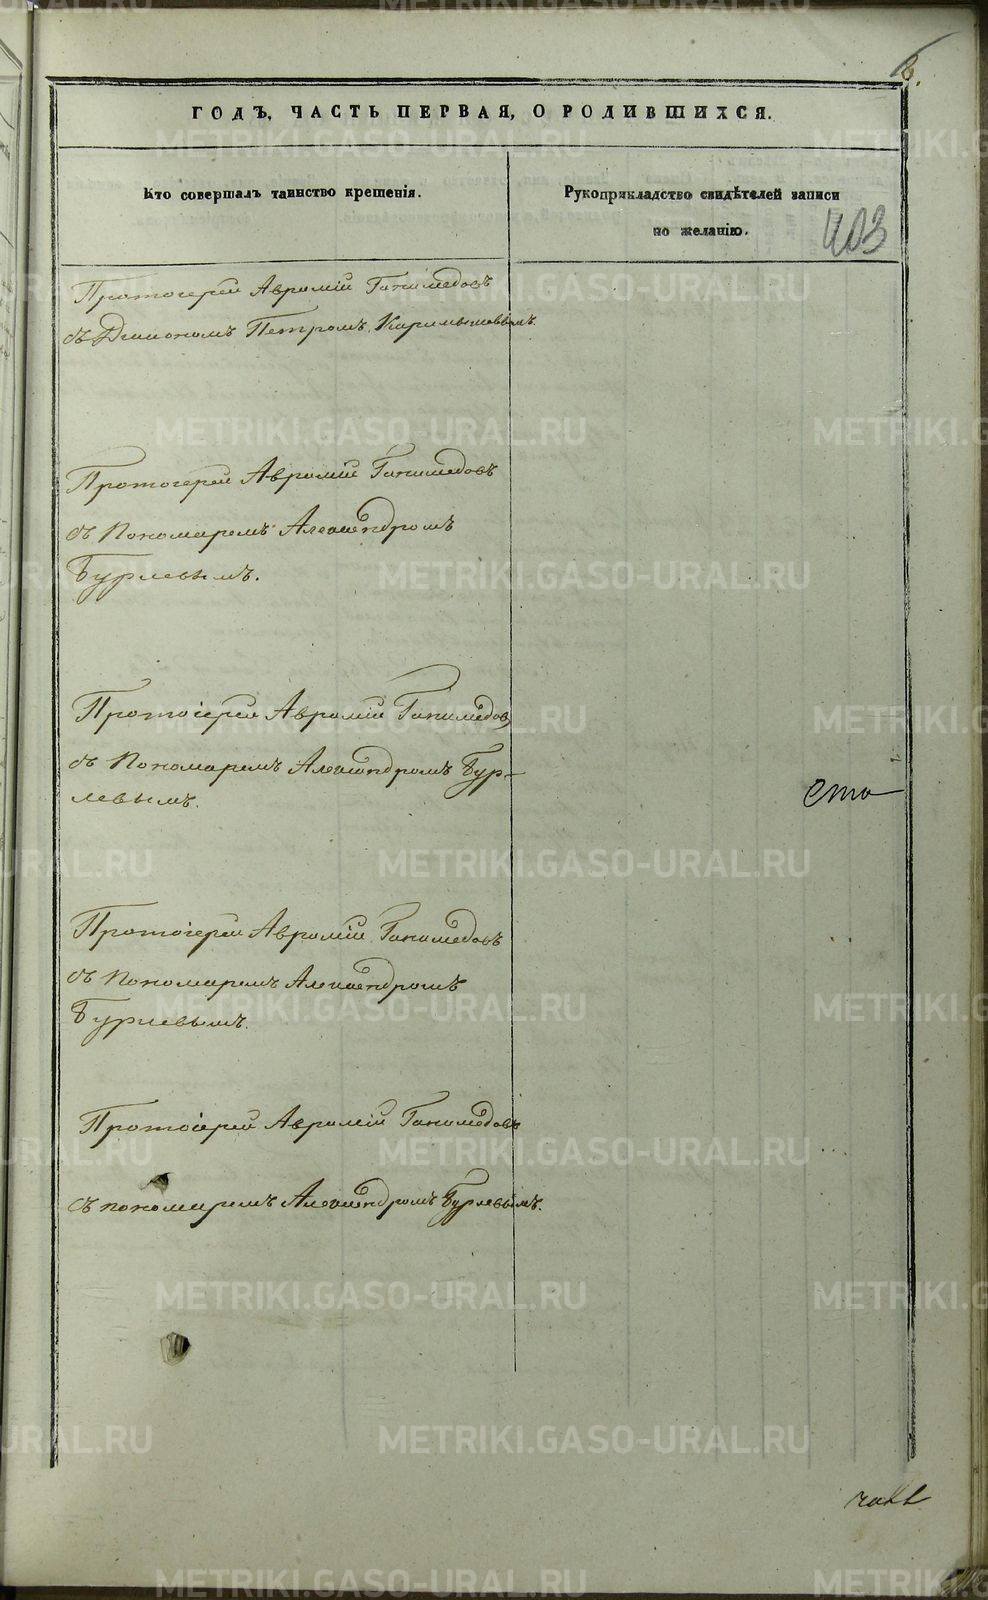 6.
ГОДЪ, ЧАСТЬ ПЕРВАЯ, О РОДИВШИХСЯ.
Кто совершалъ таинство крещенія.
Рукоприкладство свидѣтелей записи
по желанію.
403
Протоіерей Аврамій Ганимедовъ
съ Діакономъ Петромъ
Протоіерей Аврамій Ганимедовъ
съ Пономаремъ Александромъ
Бурлевымъ.
Протоіерей Аврамій Ганимедовъ
съ Пономаремъ Александромъ Бур-
левымъ.
сто
Протоіерей Аврамій Ганимедовъ
съ Пономаремъ Александромъ
Бурлевымъ.
Протоіерей Аврамій Ганимедовъ
съ пономаремъ Александромъ Бурлевымъ.
METRIKI.GASO-URAL.RU